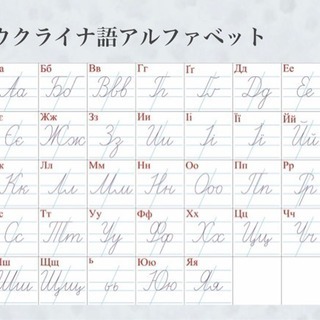 ウクライナ語アルファベット
а Бб Вв Гг Ґґ Дд Ее
Аа Бб Вв Гг Ґґ Дд Ее
є Жж Зз Ии Іі Її Йй
Єє Жж Зз Ии Іі Її Йй
к Лл Мм Нн Оо Пп Рр
Кк Лл Мм Нн Оо Пп Рр
с Тт Уу Фф Хх Цц Чч
Сс Тт Уу Фф Хх Цц Чч
Шш Щщ ь Юю Яя
Шш Щщ ь Юю Яя